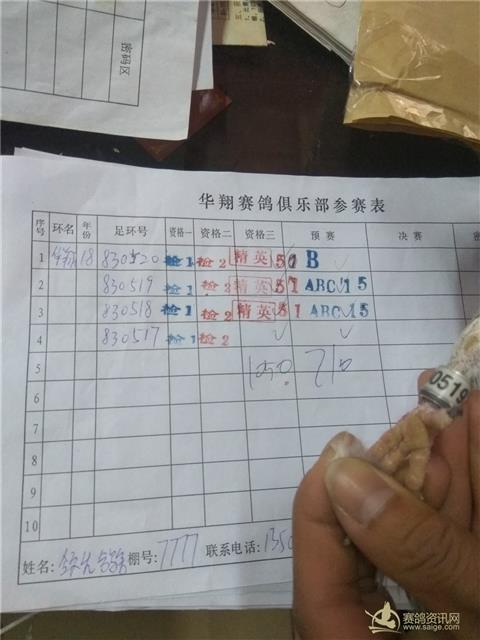 密码区
华翔赛鸽俱乐部参赛表
序号 环名 年份 足环号 资格一 资格二 资格三 预赛 决赛
1 华翔 18 830520 检1 检2 精英 51 B ✓
2 830519 检1 检2 精英 51 ABC 15
3 830518 检1 检2 精英 51 ABC 15
4 830517 检1 检2 ✓ ✓
5 1050 710
6
7
8
9
10
姓名: 棚号: 7777 联系电话: 1350
0519
赛鸽资讯网
www.saige.com